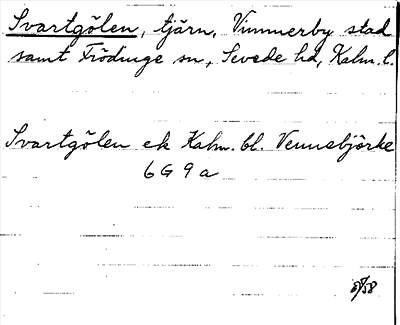 Svartgölen, tjärn, Vimmerby stad
samt Frödinge sn, Sevede hd, Kalm. l.
Svartgölen ek Kalm. bl. Vennebjörke
6 G 9 a